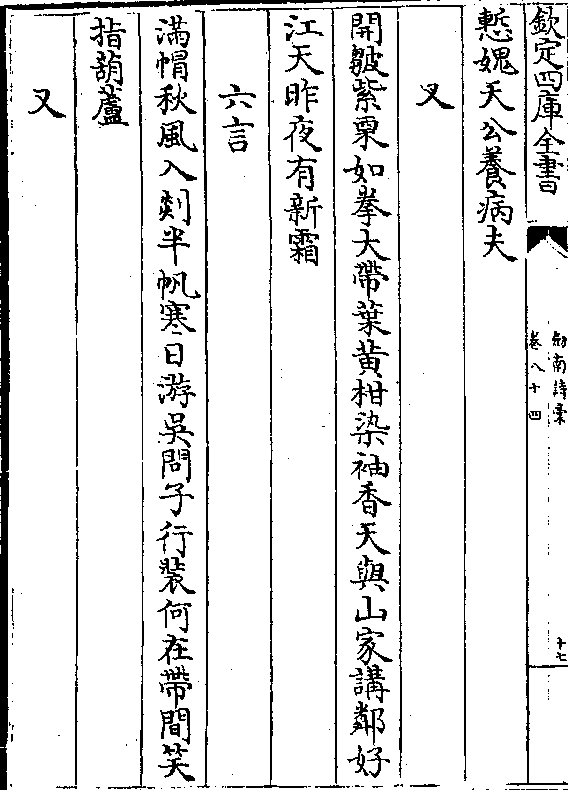 欽定四庫全書
劍南詩稾
卷八十四
十七
慙媿天公養病夫
又
開皺紫栗如拳大帶葉黄柑染袖香天與山家講鄰好
江天昨夜有新霜
六言
滿帽秋風入剡半帆寒日游吳問子行裝何在帶間笑
指葫蘆
又